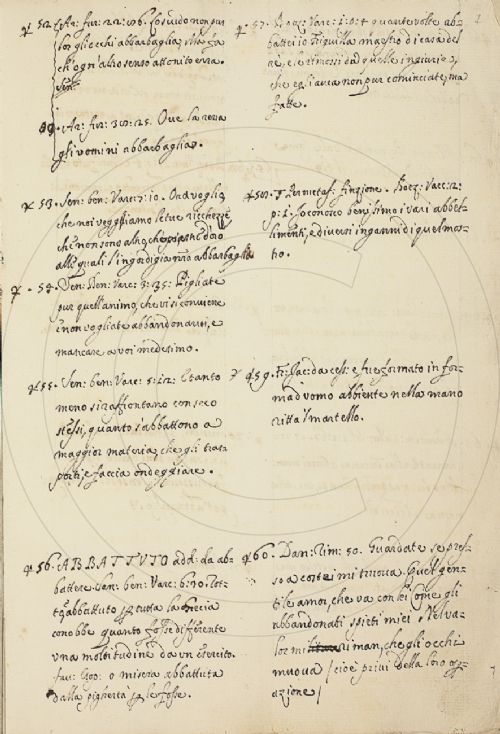 52. Ar: fur: 22: 86. Lo scudo non pur
lor gli occhi abbarbaglia, ma fa
ch'ogni altro senso attonito erra.
Ar: fur: 30: 25. Ove la
gli uomini abbarbaglia.
53. Sen: ben: Varc: 7: 10. Ora voglio
che noi veggiamo le tue ricchezze
che non sono altro, che d'oro
alle quali s'ingordigia abbarbaglia
54. Sen: Ben: Varc: 3: 35: Pigliate
pur quell'animo, che vi si conviene
e non vogliate abbandonarvi, e
mancare a voi medesimo.
55. Sen: ben: Varc: 5: 12: E tanto
meno si raffrontano con seco
stessi, quanto s'abbattono a
maggior materia, che gli tras-
porti, e faccia ondeggiare.
56. ABBATTUTO add: da ab-
battere. Sen: ben: Varc: 6: 30. Tot-
abbattuto per tutta la Grecia
conobbe quanto fosse differente
una moltitudine da un esercito.
o misera abbattuta
dalla
57. Boez: Varc: 1: p: 4 quante volte ab-
battei io Triquilla maestro di casa del
re, e rimossi da quelle ingiurie,
che egli avea non pur cominciate, ma
fatte.
58. Per metaf: finzione. Boez: Varc: 2:
p: 1. Io conosco benissimo i vari abbel-
limenti, e diversi inganni di quel mos-
tro.
59. Fr: Jac: da cess: e fue formato in for-
ma d'uomo abbiente nella mano
ritta 'l martello.
60. Dan: Rim: 50. Guardate se pres-
so a costei mi truova quel gen-
tile amor, che va con lei, come gli
abbandonati spirti miei
lor riman, che gli occhi
muova / cioè privi della loro op-
razione /